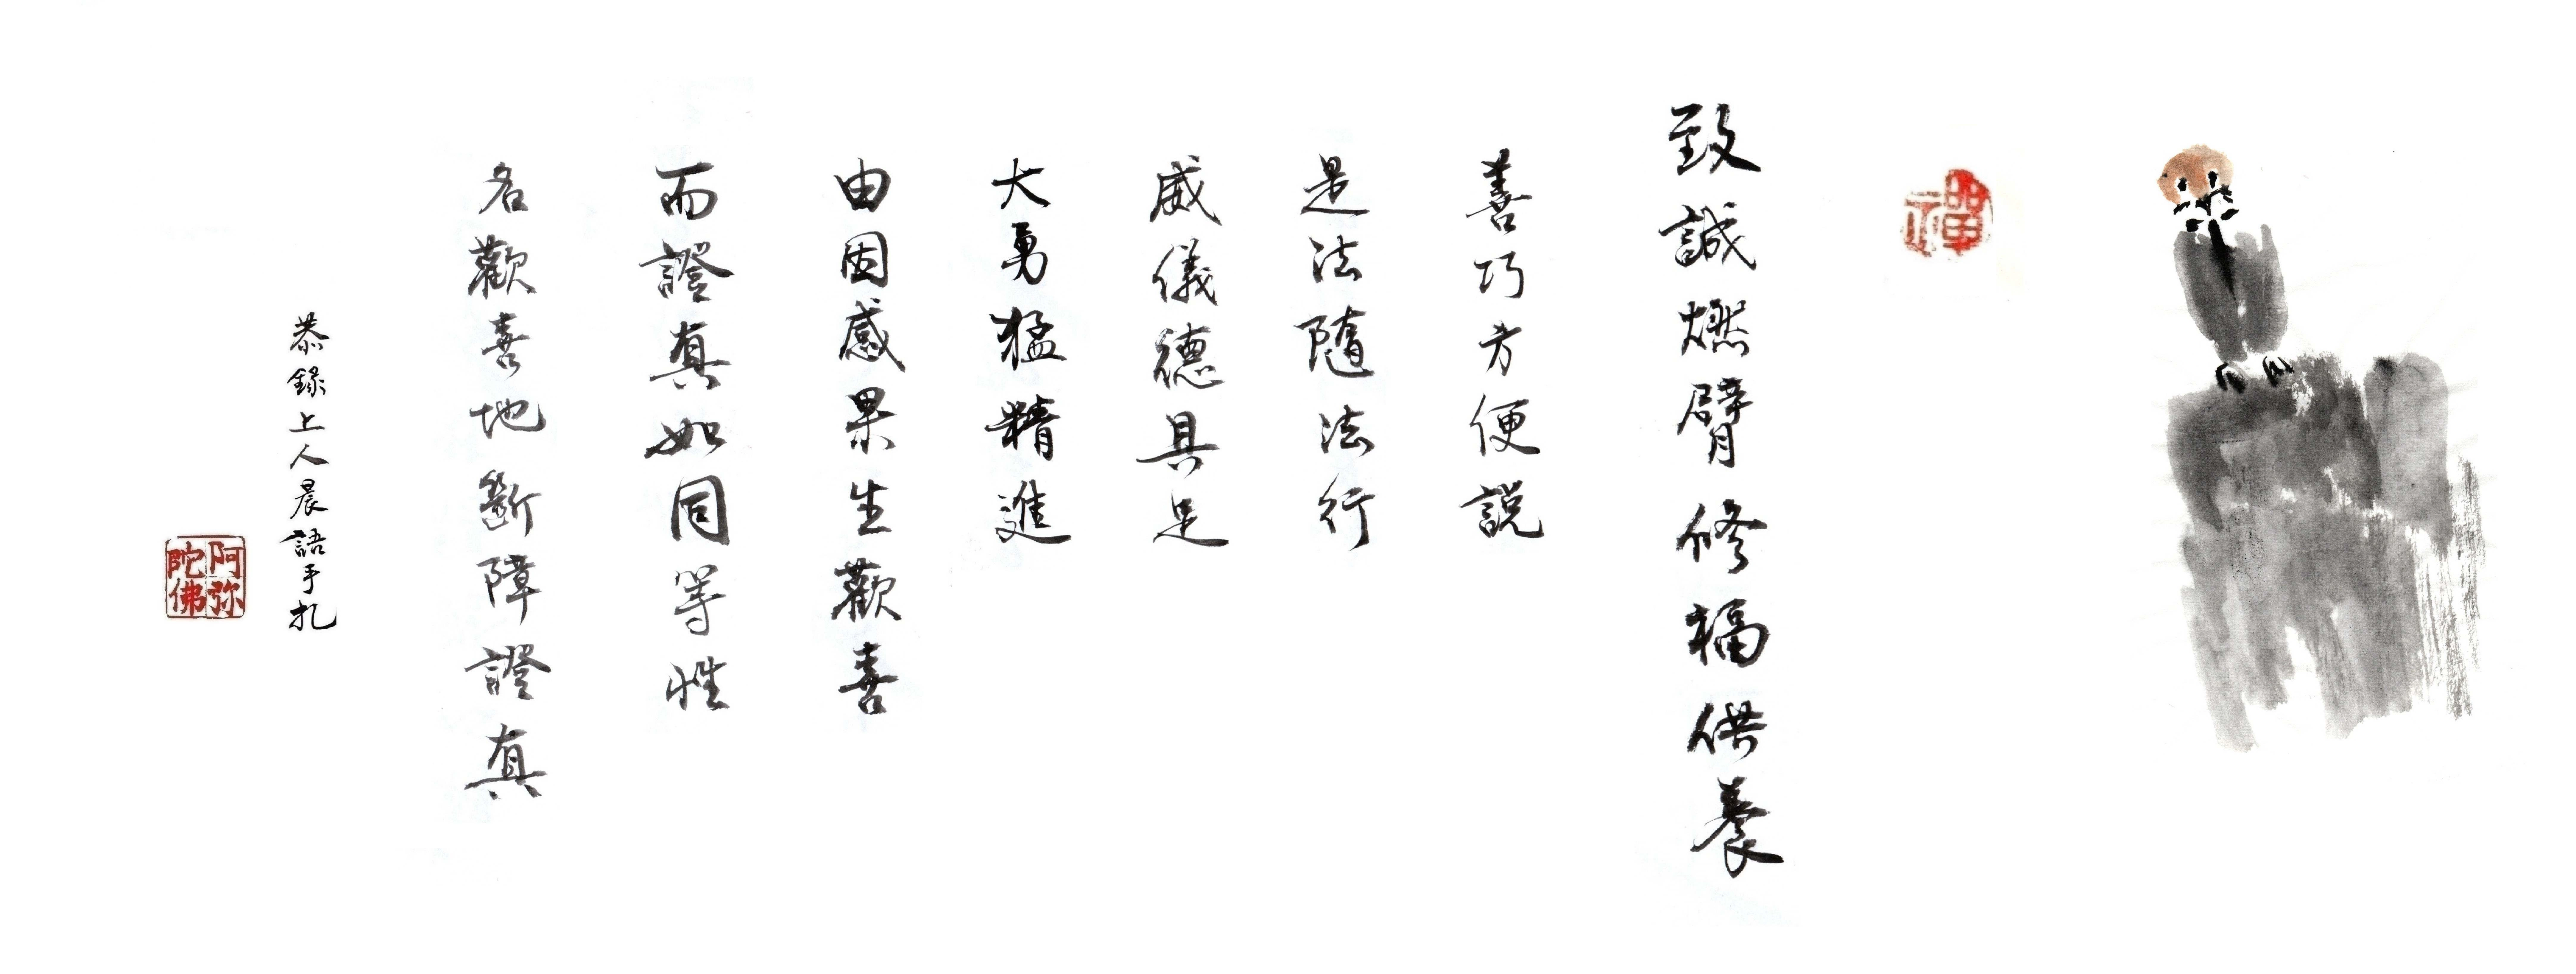 禪
致誠燃臂修福供養
善巧方便說
是法隨法行
威儀德具足
大勇猛精進
由因感果生歡喜
而證真如同等性
名歡喜地斷障證真
恭錄上人晨語手札
阿弥陀佛